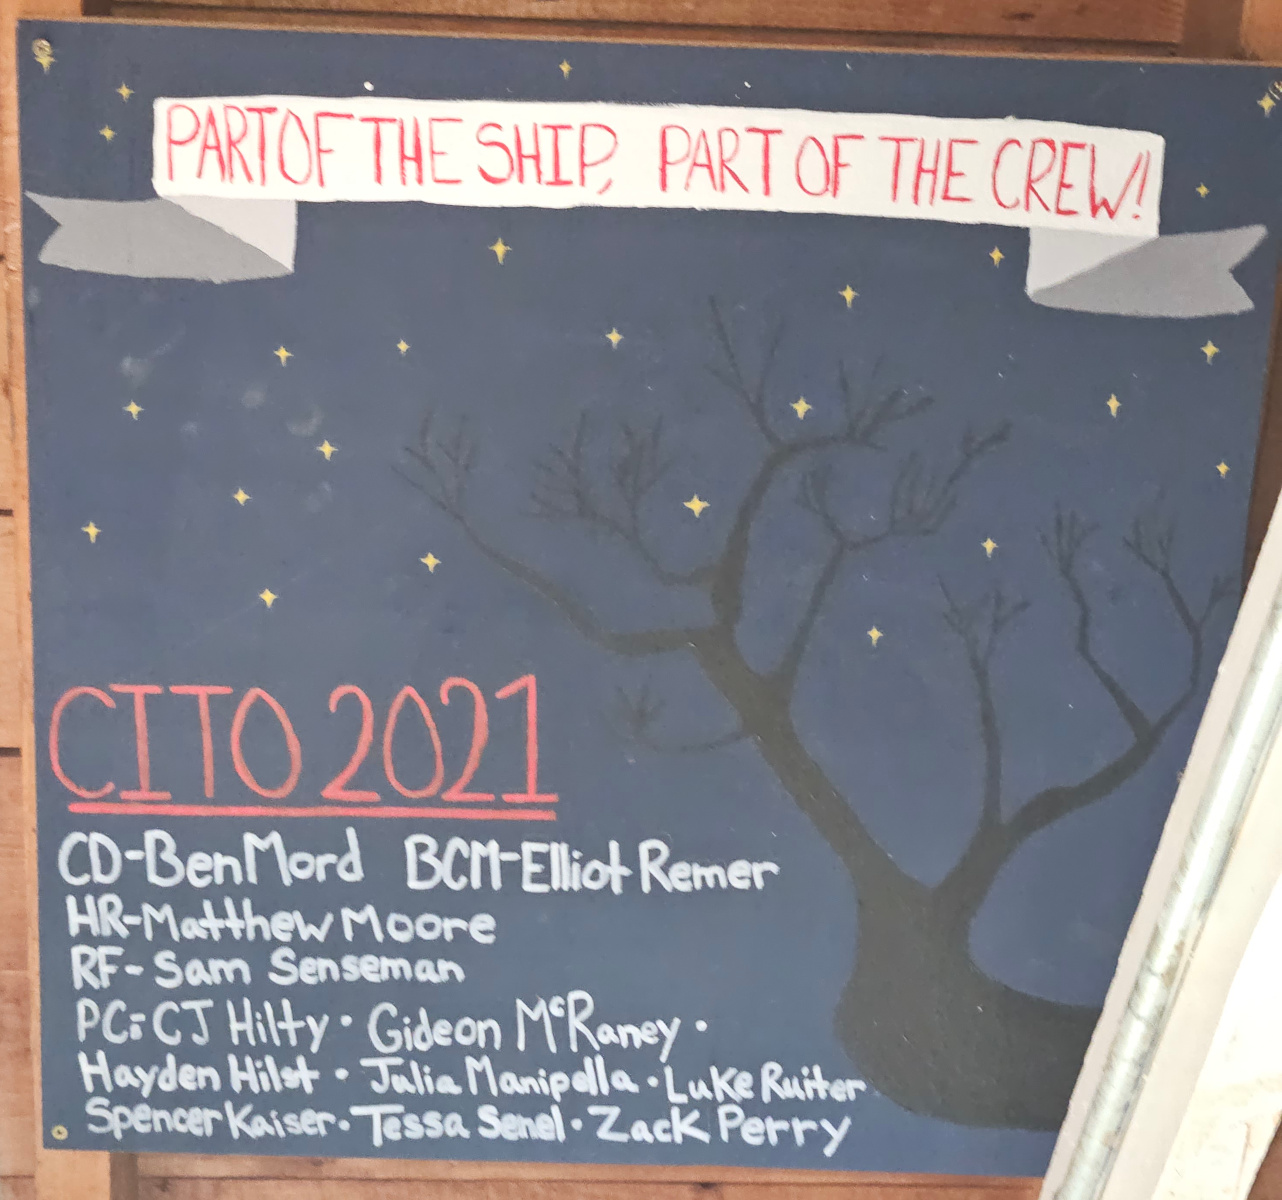 PART OF THE SHIP, PART OF THE CREW!
CITO 2021
CD-Ben Mord BCM-Elliot Remer
HR-Matthew Moore
RF-Sam Senseman
PC: CJ Hilty · Gideon McRaney ·
Hayden Hilst · Julia Manipella · Luke Ruiter
Spencer Kaiser · Tessa Senel · Zack Perry